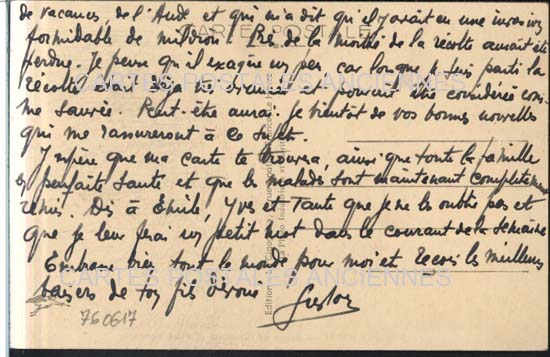 de vacances, de l'Aude et qui m'a dit qu'il y avait eu une invasion
formidable de mildiou. Près de la moitié de la récolte aurait été
perdue. Je pense qu'il exagère un peu car lorsque je suis parti la
récolte était déjà et pouvait être considérée com-
me sauvée. Peut-être aurai-je bientôt de vos bonnes nouvelles
qui me rassureront à ce sujet.
J'espère que ma carte te trouvera, ainsi que toute la famille
en parfaite santé et que les malades sont maintenant complètement
remis. Dis à Emile, Yves et Tante que je ne les oublie pas et
que je leur ferai un petit mot dans le courant de la semaine
Embrasse bien tout le monde pour moi et reçois les meilleurs
baisers de ton fils dévoué
760617
CARTE POSTALE
CARTES POSTALES ANCIENNES
CARTES POSTALES ANCIENNES